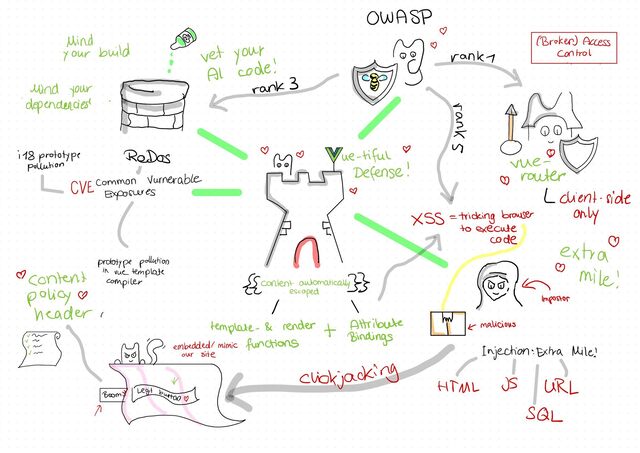 OWASP
Mind
your build
vet your
AI code!
rank 3
rank 1
(Broken) Access
Control
Mind your
dependencies!
rank 5
i18 prototype
pollution
ReDos
Vue-tiful
Defense!
vue-
router
CVE Common Vulnerable
Exposures
client-side
only
XSS = tricking browser
to execute
code
prototype pollution
in vue template
compiler
extra
mile!
content
policy
header
{{content automatically
escaped}}
Impostor
template- & render
functions
+
Attribute
Bindings
malicious
embedded/mimic
our site
Injection: Extra Mile!
clickjacking
HTML
JS
URL
SQL
Boom!
Legit button